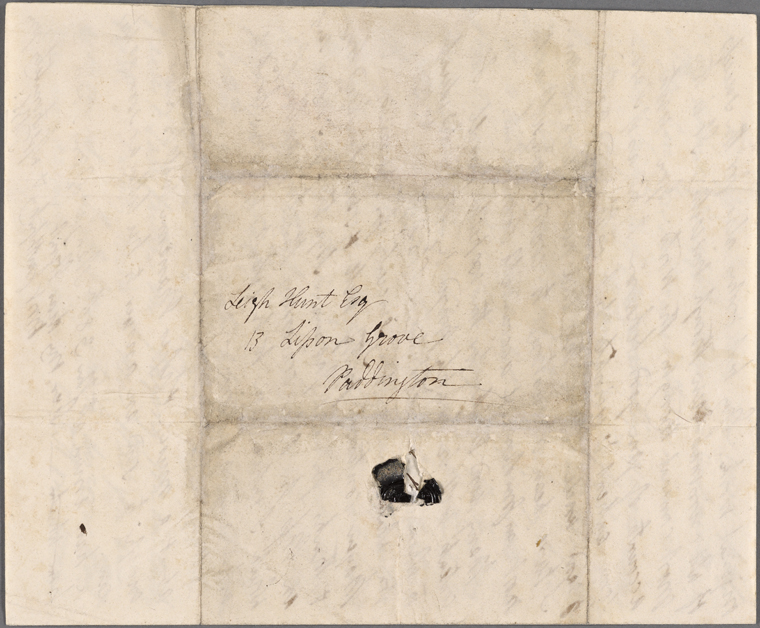 Leigh Hunt Esq
13 Lisson Grove
Paddington